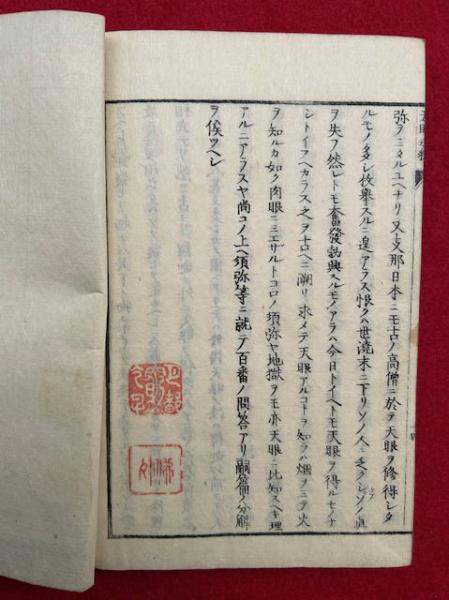 弥ヲミタルユヘナリ又支那日本ニモ古ノ高僧ニ於テ天眼ヲ修得シタ
ルモノ多シ枚擧スルニ遑アラス恨クハ世澆末ニ下リソノ人ニ乏クシソノ眞
ヲ失フ然レトモ奮發勃興スルモノアラハ今日トイヘトモ天眼ヲ得ルモノナ
シトイフヘカラス之ヲ古ヘニ溯リ求メテ天眼アルコトヲ知ラハ烟ヲミテ火
ヲ知ルカ如ク肉眼ニミエザルトコロノ須弥ヤ地獄ヲモ亦天眼ニ比知スヘキ理
アルニアラスヤ尚コノ上ヘ須弥等ニ就テノ百番ノ問答アリ嗣篇ノ分解
ヲ俟ツヘシ